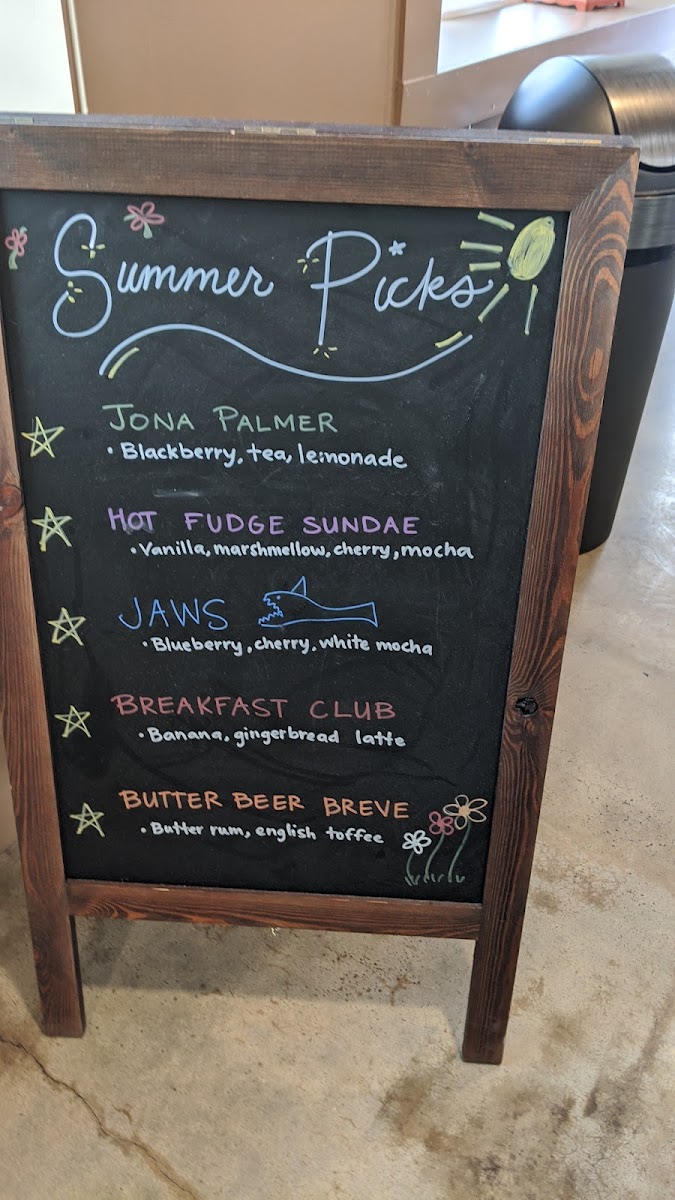 Summer Picks
JONA PALMER
• Blackberry, tea, lemonade
HOT FUDGE SUNDAE
• Vanilla, marshmellow, cherry, mocha
JAWS
• Blueberry, cherry, white mocha
BREAKFAST CLUB
• Banana, gingerbread latte
BUTTER BEER BREVE
• Butter rum, english toffee